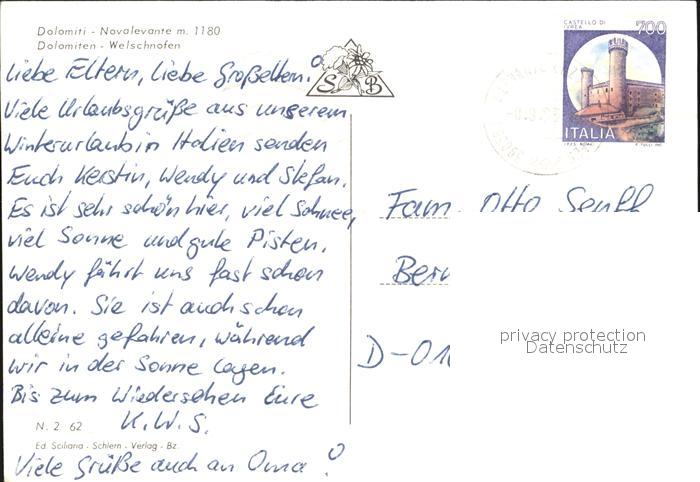 Dolomiti - Novalevante m. 1180
Dolomiten - Welschnofen
Liebe Eltern, liebe Großeltern!
Viele Urlaubsgrüße aus unserem
Winterurlaub in Italien senden
Euch Kerstin, Wendy und Stefan.
Es ist sehr schön hier, viel Schnee,
viel Sonne und gute Pisten.
Wendy fährt uns fast schon
davon. Sie ist auch schon
alleine gefahren, während
wir in der Sonne lagen.
Bis zum Wiedersehen Eure
K.W.S.
N. 2 62
Ed. Sciliaria - Schlern - Verlag - Bz.
Viele Grüße auch an Oma!
S B
CASTELLO DI
IVREA
700
ITALIA
Fam. Otto
Ber
D-01
privacy protection
Datenschutz